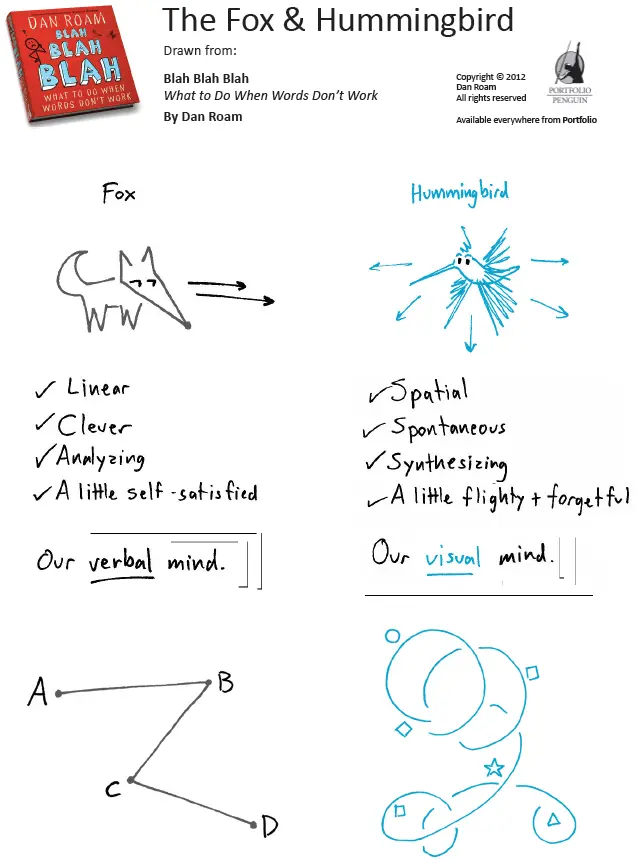 DAN ROAM
BLAH
BLAH
BLAH
WHAT TO DO WHEN
WORDS DON'T WORK
The Fox & Hummingbird
Drawn from:
Blah Blah Blah
What to Do When Words Don't Work
By Dan Roam
Copyright © 2012
Dan Roam
All rights reserved
PORTFOLIO
PENGUIN
Available everywhere from Portfolio
Fox
✓ Linear
✓ Clever
✓ Analyzing
✓ A little self-satisfied
Our verbal mind.
A
B
C
D
Hummingbird
✓ Spatial
✓ Spontaneous
✓ Synthesizing
✓ A little flighty + forgetful
Our visual mind.